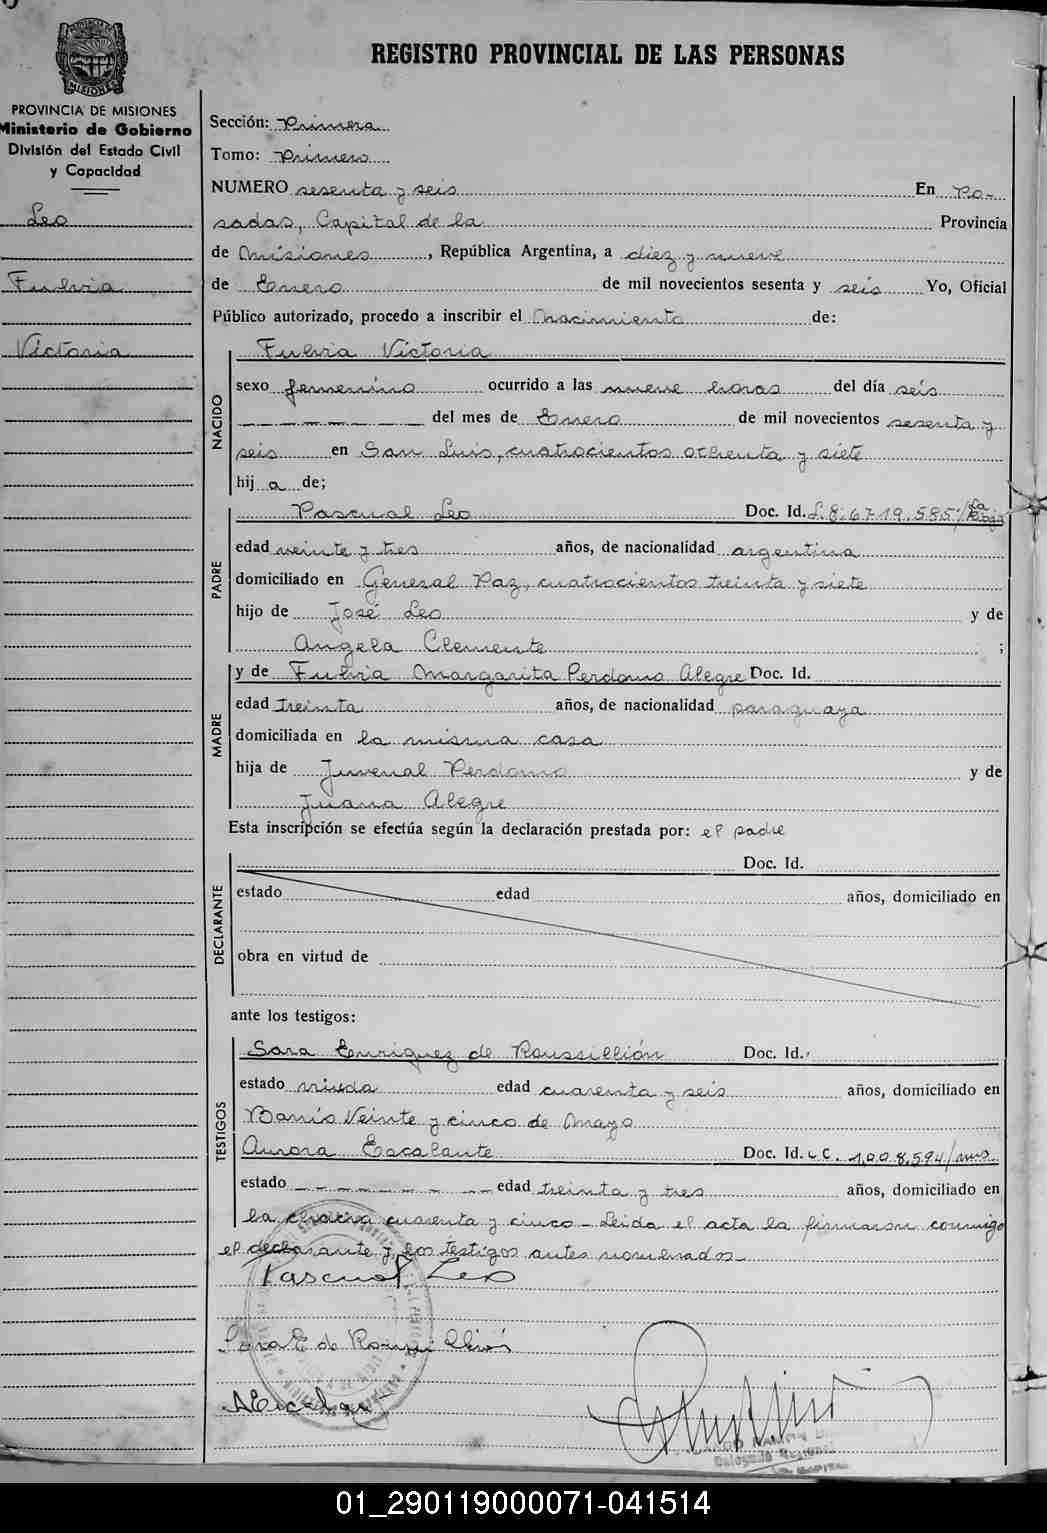 REGISTRO PROVINCIAL DE LAS PERSONAS
PROVINCIA DE MISIONES
Ministerio de Gobierno
División del Estado Civil
y Capacidad
Leo
Fulvia
Victoria
Sección: Primera
Tomo: Primero
NUMERO sesenta y seis En Po-
sadas, Capital de la Provincia
de Misiones, República Argentina, a diez y nueve
de Enero de mil novecientos sesenta y seis Yo, Oficial
Público autorizado, procedo a inscribir el Nacimiento de:
NACIDO
Fulvia Victoria
sexo femenino ocurrido a las nueve horas del día seis
del mes de Enero de mil novecientos sesenta y
seis en San Luis, cuatrocientos ochenta y siete
hij a de;
PADRE
Pascual Leo Doc. Id. L.8.6719.585/La Rioja
edad veinte y tres años, de nacionalidad argentina
domiciliado en General Paz, cuatrocientos treinta y siete
hijo de José Leo y de
Angela Clemente ;
MADRE
y de Fulvia Margarita Perdomo Alegre Doc. Id.
edad treinta años, de nacionalidad paraguaya
domiciliada en la misma casa
hija de Juvenal Perdomo y de
Juana Alegre
Esta inscripción se efectúa según la declaración prestada por: el padre
DECLARANTE
Doc. Id.
estado edad años, domiciliado en
obra en virtud de
ante los testigos:
TESTIGOS
Sara Enriquez de Roussillión Doc. Id.
estado viuda edad cuarenta y seis años, domiciliado en
Barrio Veinte y cinco de Mayo
Aurora Escalante Doc. Id. L C. 1.008.594/mns
estado edad treinta y tres años, domiciliado en
la chacra cuarenta y cinco - Leida el acta la firmaron conmigo
el declarante y los testigos antes nombrados
Pascual Leo
Sara E de Roussillión
Delegado Regional
01_290119000071-041514